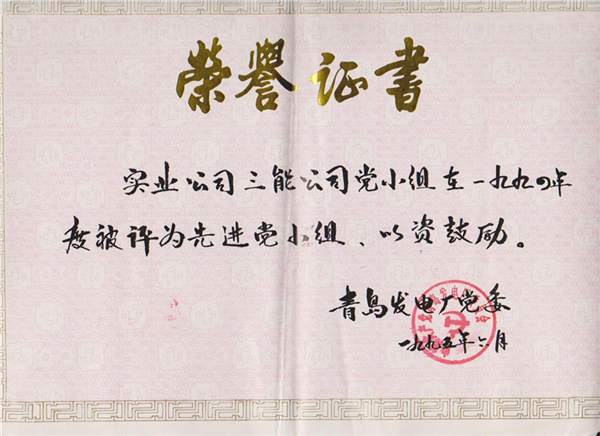 榮譽证書
实业公司三能公司党小组在一九九四年
度被评为先进党小组、以资鼓励。
青岛发电厂党委
一九九五年六月